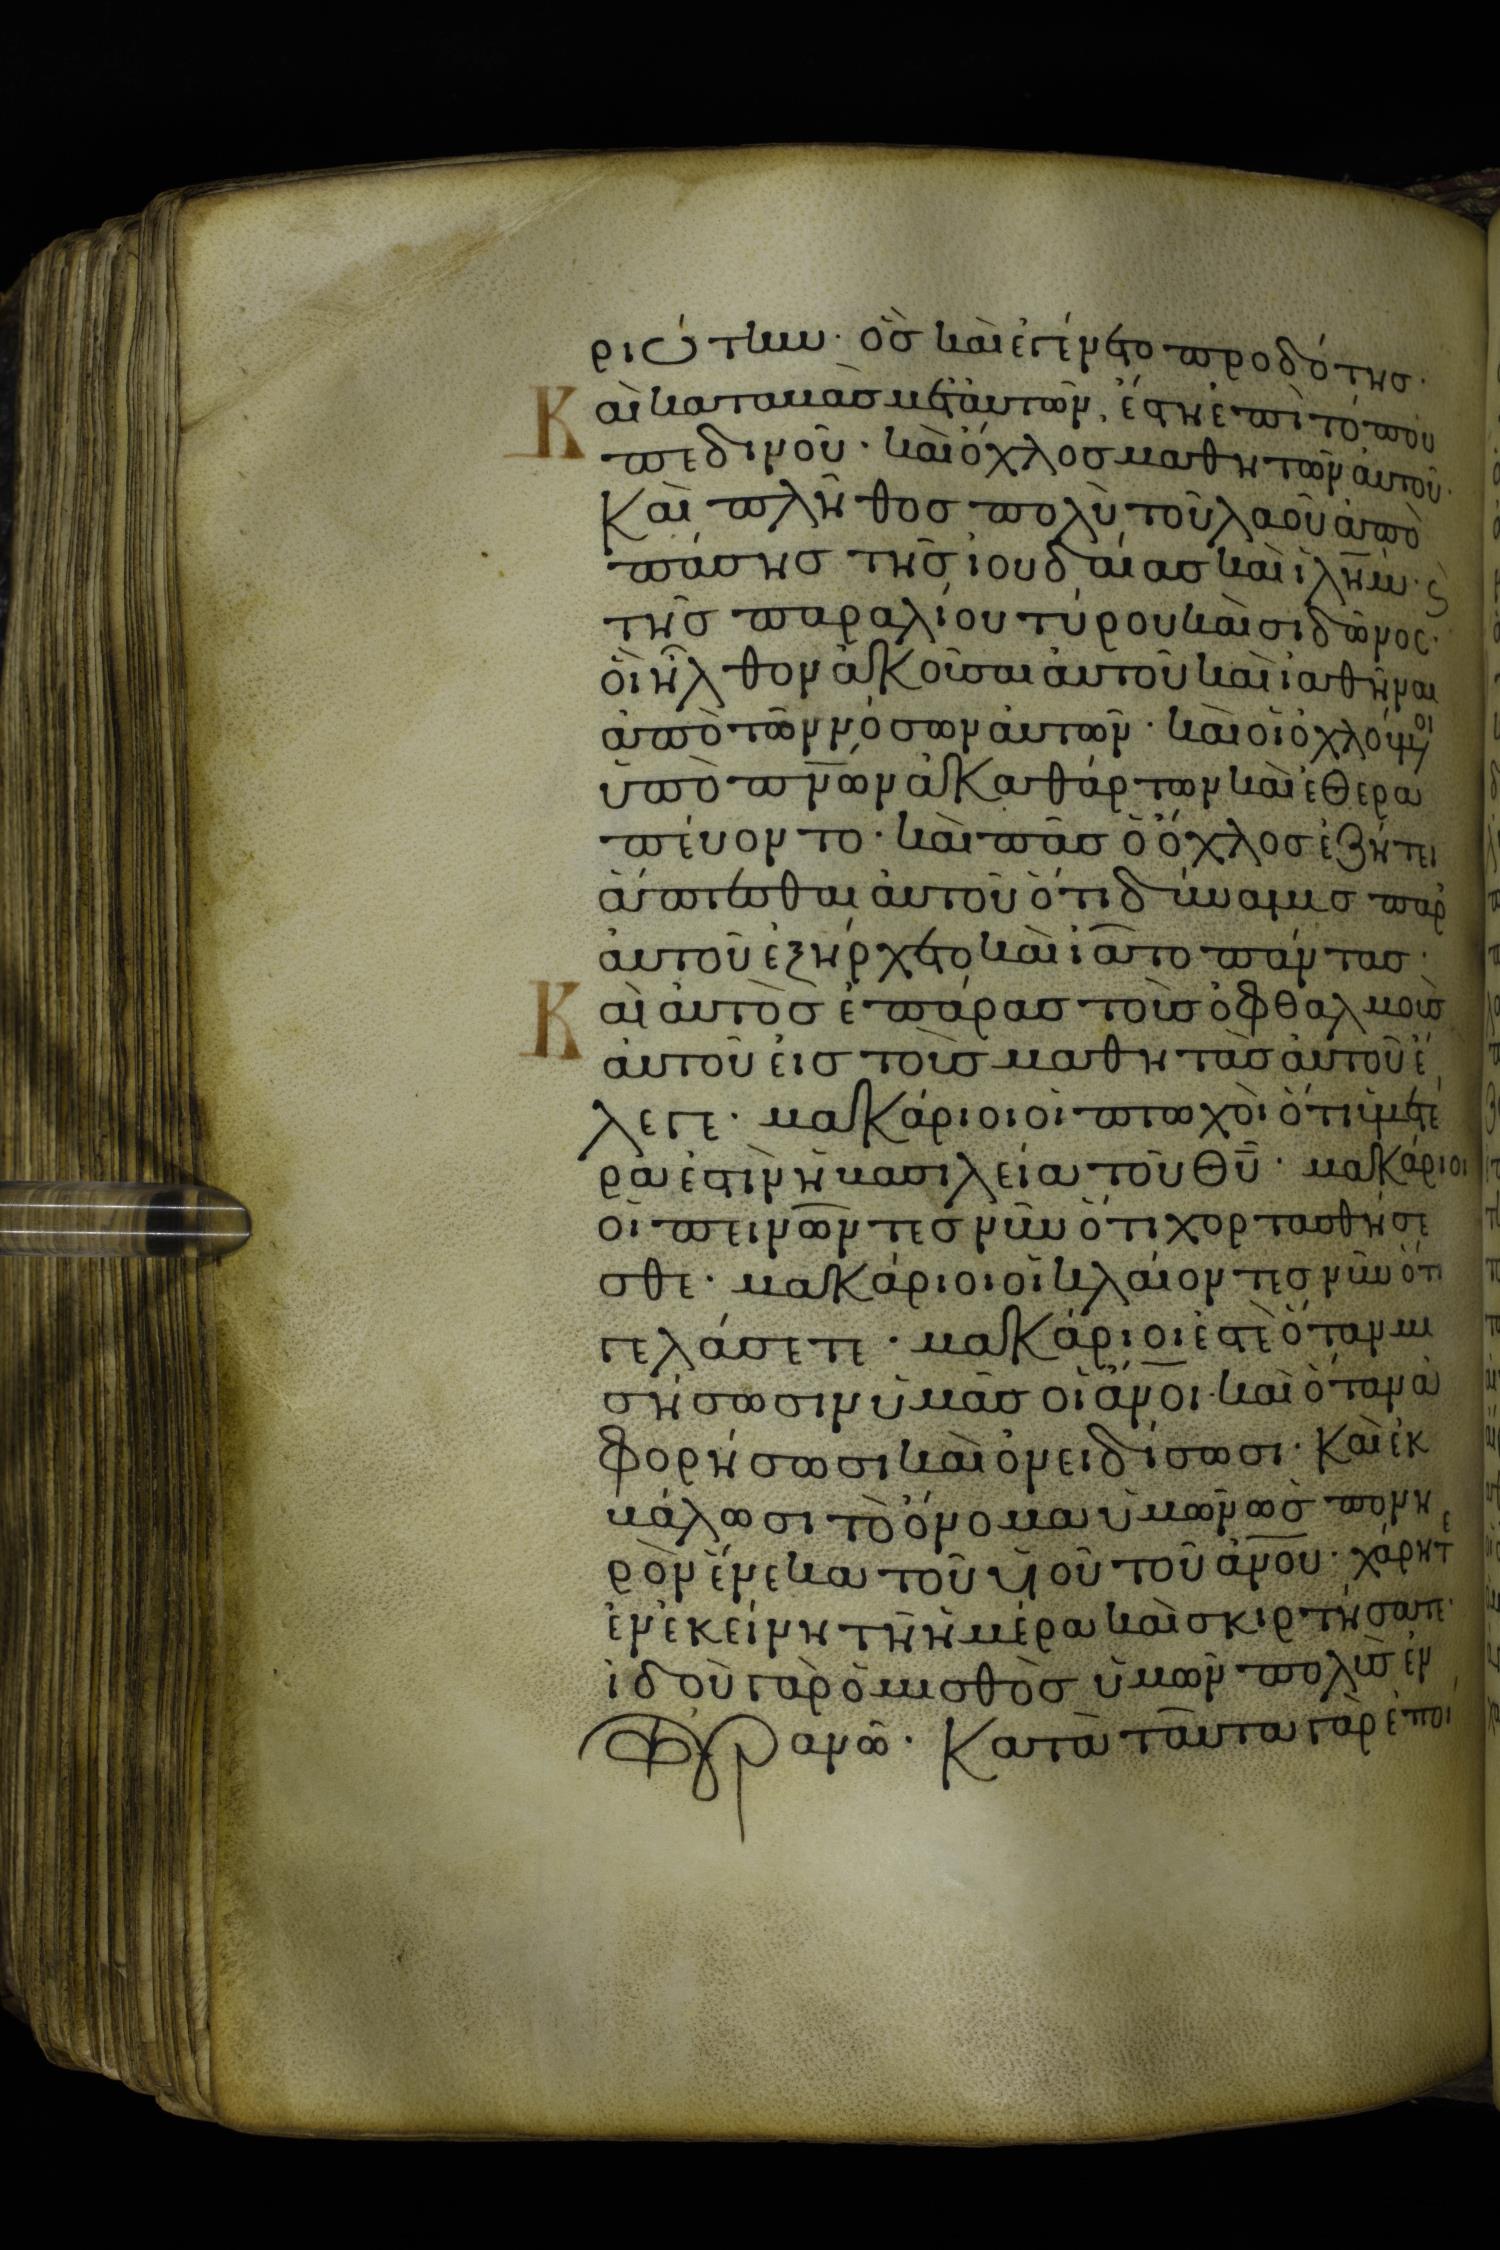 ριώτην· ὃς καὶ ἐγένετο προδότης·
Καὶ καταβὰς μετ' αὐτῶν, ἔστη ἐπὶ τόπου
πεδινοῦ· καὶ ὄχλος μαθητῶν αὐτοῦ·
Καὶ πλῆθος πολὺ τοῦ λαοῦ ἀπὸ
πάσης τῆς ἰουδαίας καὶ ἰλῆμ· ϛ
τῆς παραλίου τύρου καὶ σιδῶνος·
οἳ ἦλθον ἀκοῦσαι αὐτοῦ καὶ ἰαθῆναι
ἀπὸ τῶν νόσων αὐτῶν· καὶ οἱ ὀχλούμενοι
ὑπὸ πνῶν ἀκαθάρτων καὶ ἐθερα
πεύοντο· καὶ πᾶς ὁ ὄχλος ἐζήτει
ἅπτεσθαι αὐτοῦ ὅτι δύναμις παρ'
αὐτοῦ ἐξήρχετο καὶ ἰᾶτο πάντας·
Καὶ αὐτὸς ἐπάρας τοὺς ὀφθαλμοὺς
αὐτοῦ εἰς τοὺς μαθητὰς αὐτοῦ ἔ
λεγε· μακάριοι οἱ πτωχοὶ ὅτι ὑμετέ
ρα ἐστὶν ἡ βασιλεία τοῦ Θῦ· μακάριοι
οἱ πεινῶντες νῦν ὅτι χορτασθήσε
σθε· μακάριοι οἱ κλαίοντες νῦν ὅτι
γελάσετε· μακάριοι ἐστὲ ὅταν μι
σήσωσιν ὑμᾶς οἱ ἄνοι· καὶ ὅταν ἀ
φορήσωσι καὶ ὀνειδίσωσι· Καὶ ἐκ
βάλωσι τὸ ὄνομα ὑμῶν ὡς πονη
ρὸν ἕνεκα τοῦ υἱοῦ τοῦ ἀνου· χάρητε
ἐν ἐκείνη τῆ ἡμέρα καὶ σκιρτήσατε·
ἰδοὺ γὰρ ὁ μισθὸς ὑμῶν πολὺς ἐν
τῶ οὐρανῶ· Κατὰ ταῦτα γὰρ ἐποί